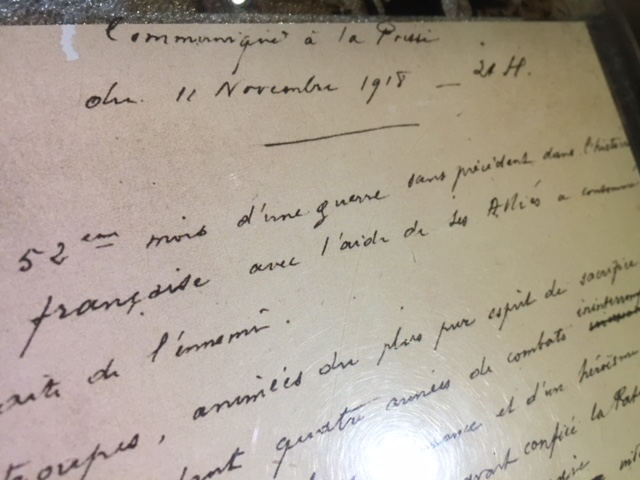 Communiqué à la Presse
du 11 Novembre 1918 — 21 H.
52 ème mois d'une guerre sans précédent dans l'histoire
française avec l'aide de ses Alliés a consommé
de l'ennemi.
troupes, animées du plus pur esprit de sacrifice
quatre années de combats
et d'un héroïsme
confiée la